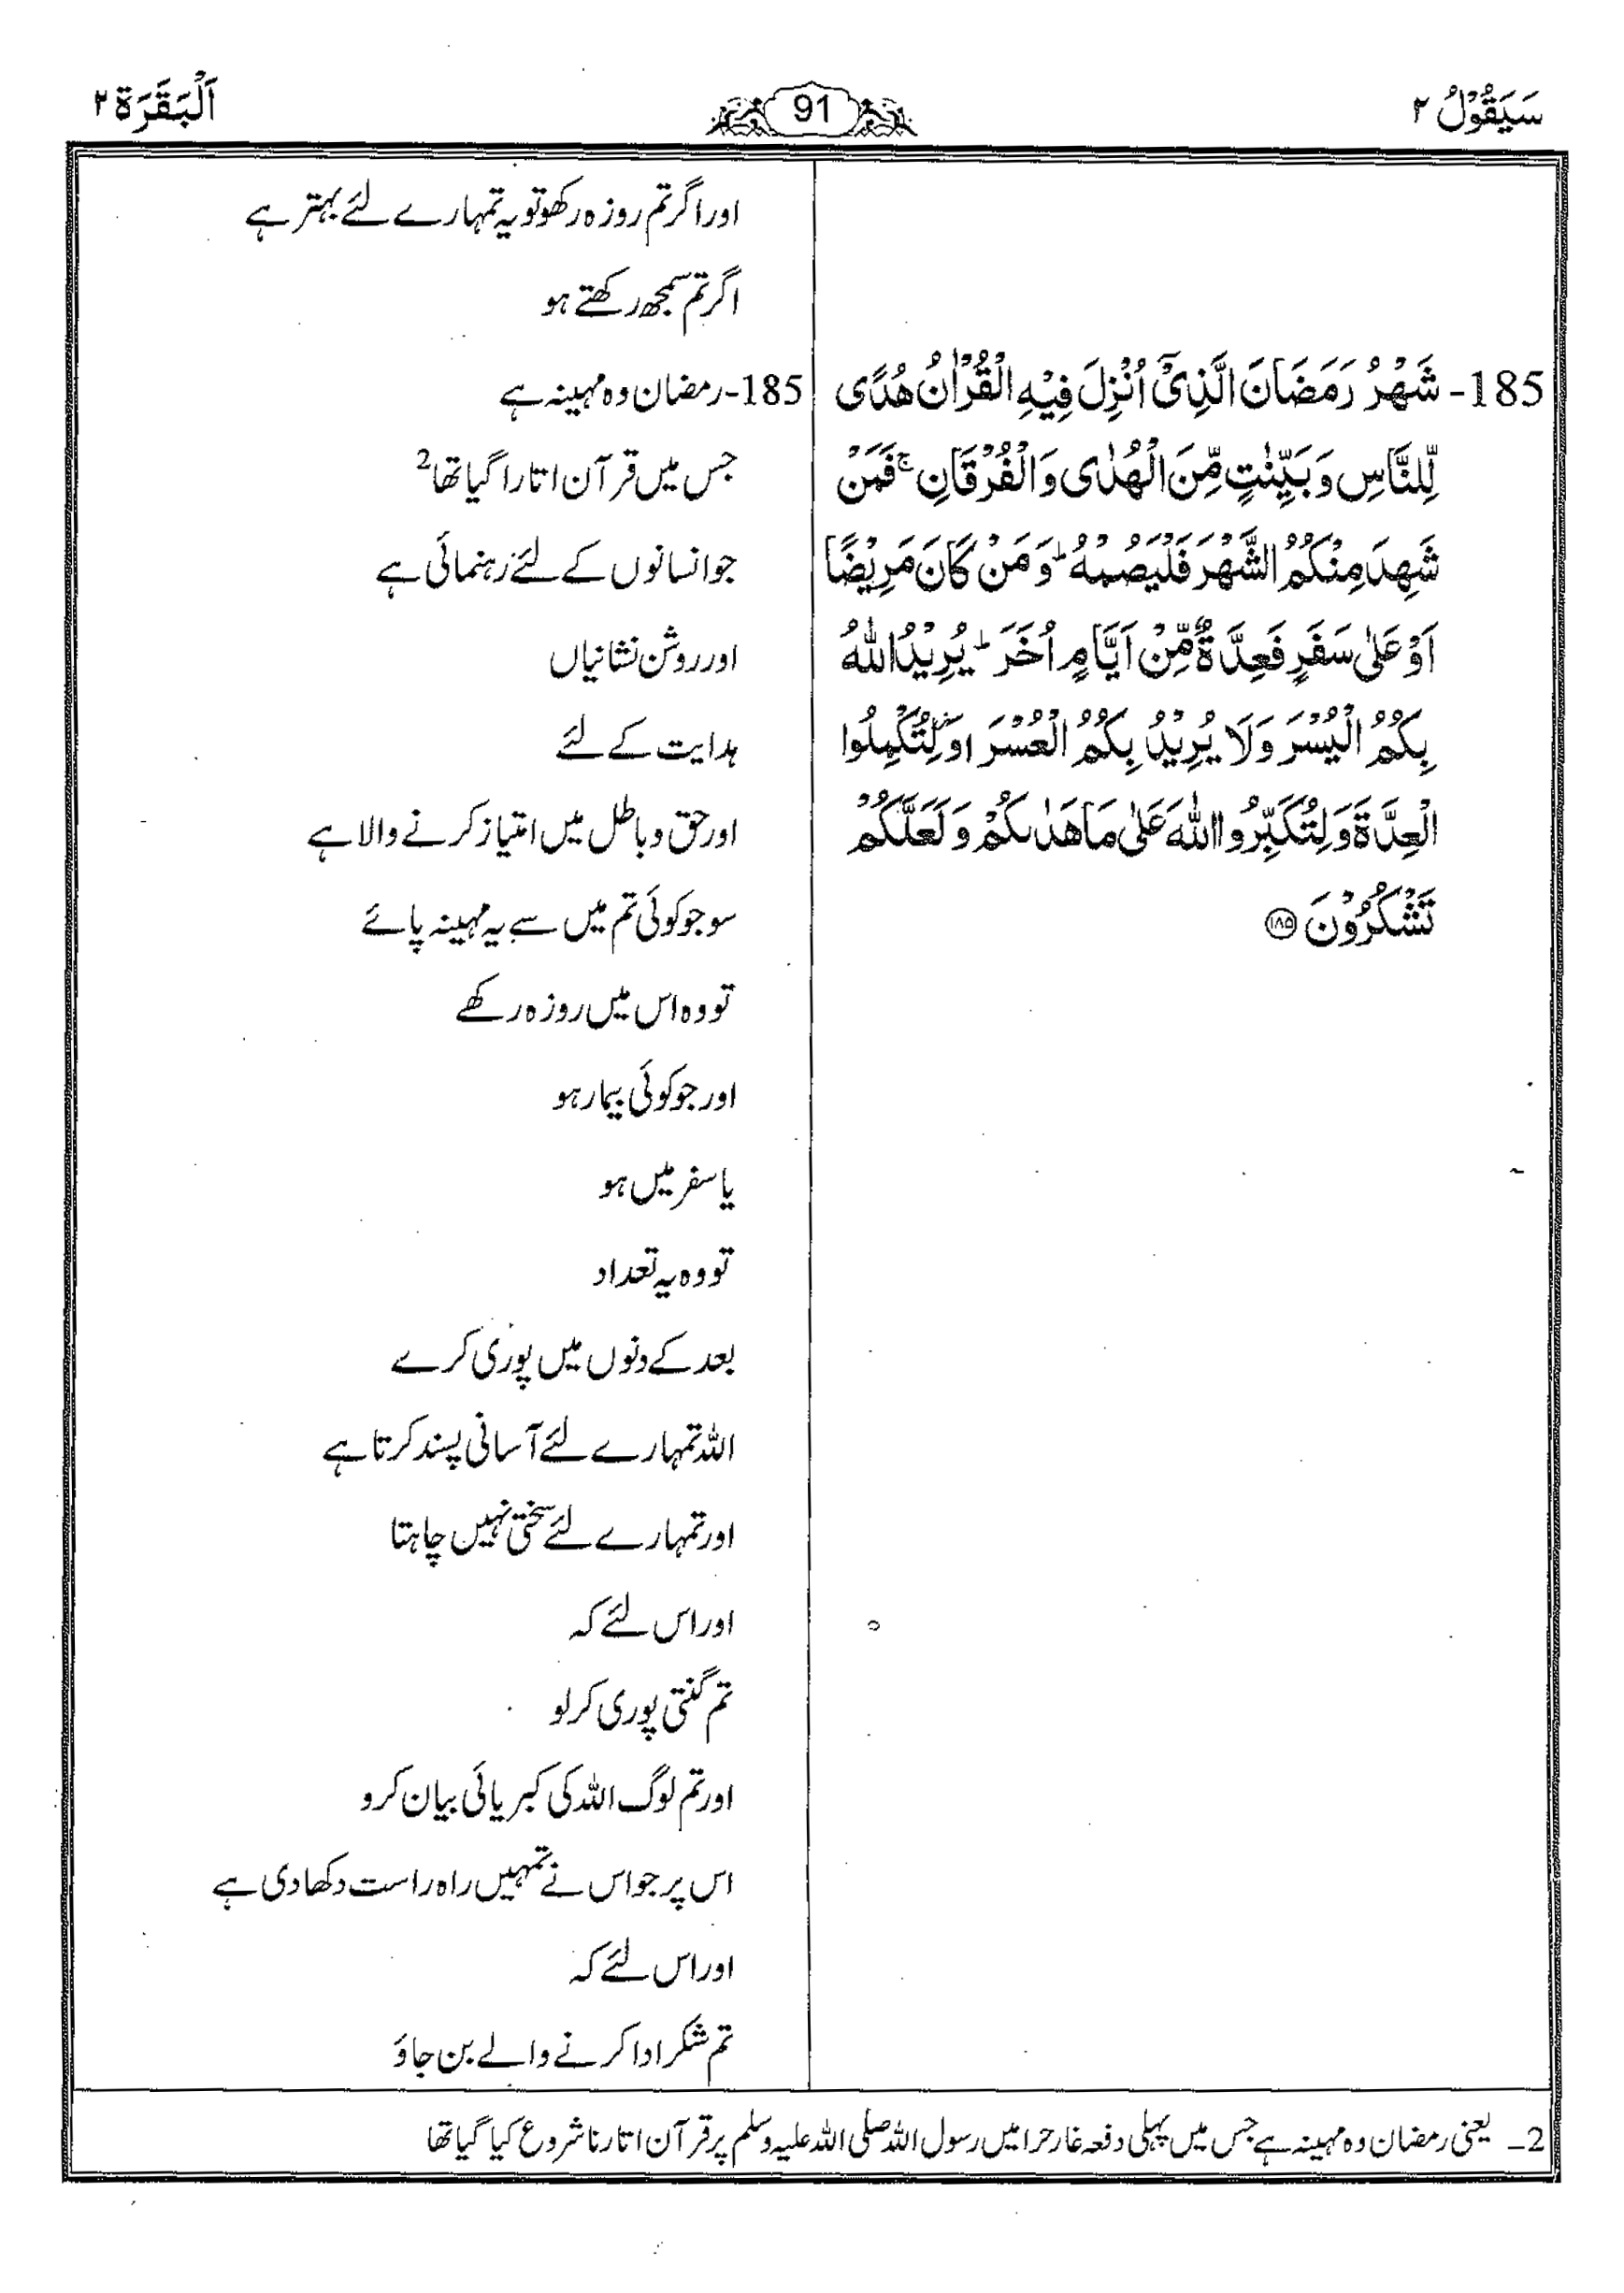 سَيَقُوْلُ ٢
91
اَلْبَقَرَة ٢
185- شَهْرُ رَمَضَانَ الَّذِىْٓ اُنْزِلَ فِيْهِ الْقُرْاٰنُ هُدًى
لِّلنَّاسِ وَبَيِّنٰتٍ مِّنَ الْهُدٰى وَالْفُرْقَانِ ۚ فَمَنْ
شَهِدَ مِنْكُمُ الشَّهْرَ فَلْيَصُمْهُ ؕ وَمَنْ كَانَ مَرِيْضًا
اَوْ عَلٰى سَفَرٍ فَعِدَّةٌ مِّنْ اَيَّامٍ اُخَرَ ؕ يُرِيْدُ اللّٰهُ
بِكُمُ الْيُسْرَ وَلَا يُرِيْدُ بِكُمُ الْعُسْرَ وَلِتُكْمِلُوا
الْعِدَّةَ وَلِتُكَبِّرُوا اللّٰهَ عَلٰى مَا هَدٰىكُمْ وَلَعَلَّكُمْ
تَشْكُرُوْنَ ۝١٨٥
اور اگر تم روزہ رکھو تو یہ تمہارے لئے بہتر ہے
اگر تم سمجھ رکھتے ہو
185- رمضان وہ مہینہ ہے
جس میں قرآن اتارا گیا تھا 2
جو انسانوں کے لئے رہنمائی ہے
اور روشن نشانیاں
ہدایت کے لئے
اور حق و باطل میں امتیاز کرنے والا ہے
سو جو کوئی تم میں سے یہ مہینہ پائے
تو وہ اس میں روزہ رکھے
اور جو کوئی بیمار ہو
یا سفر میں ہو
تو وہ یہ تعداد
بعد کے دنوں میں پوری کرے
اللہ تمہارے لئے آسانی پسند کرتا ہے
اور تمہارے لئے سختی نہیں چاہتا
اور اس لئے کہ
تم گنتی پوری کر لو
اور تم لوگ اللہ کی کبریائی بیان کرو
اس پر جو اس نے تمہیں راہ راست دکھا دی ہے
اور اس لئے کہ
تم شکر ادا کرنے والے بن جاؤ
2۔ یعنی رمضان وہ مہینہ ہے جس میں پہلی دفعہ غار حرا میں رسول اللہ صلی اللہ علیہ وسلم پر قرآن اتارنا شروع کیا گیا تھا